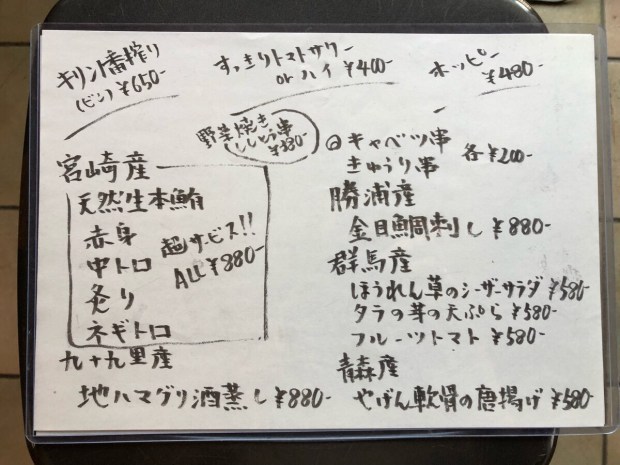 キリン一番搾り
(ビン) ¥650-
すっきりトマトサワー
or ハイ ¥400-
ホッピー
¥480-
野菜焼き
ししとう串
¥330-
◎キャベツ串
きゅうり串 各¥200-
宮崎産
天然生本鮪
赤身
中トロ
炙り
ネギトロ
超サービス!!
ALL ¥880-
九十九里産
地ハマグリ酒蒸し ¥880-
勝浦産
金目鯛刺し ¥880-
群馬産
ほうれん草のシーザーサラダ ¥580-
タラの芽の天ぷら ¥580-
フルーツトマト ¥580-
青森産
やげん軟骨の唐揚げ ¥580-